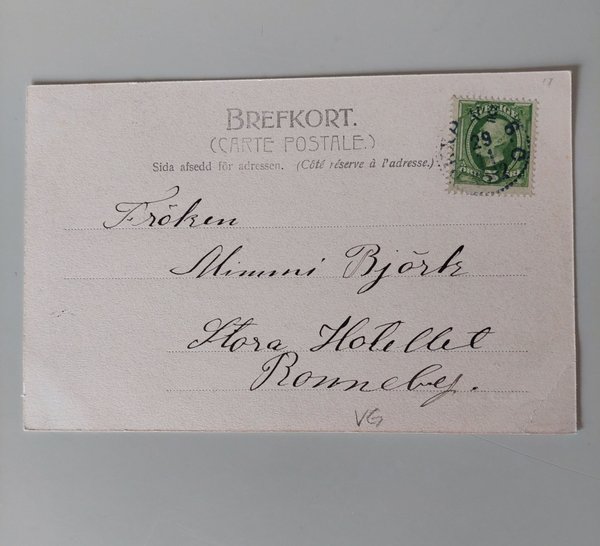 BREFKORT.
(CARTE POSTALE.)
Sida afsedd för adressen. (Côté réserve à l'adresse.)
29
5
Fröken
Mimmi Björk
Stora Hotellet
Ronneby.
VG